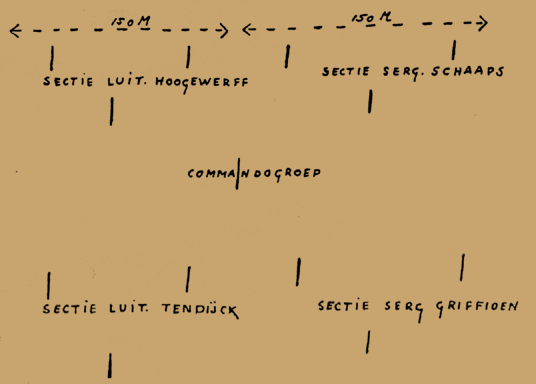 150 M 150 M
SECTIE LUIT. HOOGEWERFF SECTIE SERG. SCHAAPS
COMMANDOGROEP
SECTIE LUIT. TENDIJCK SECTIE SERG GRIFFIOEN